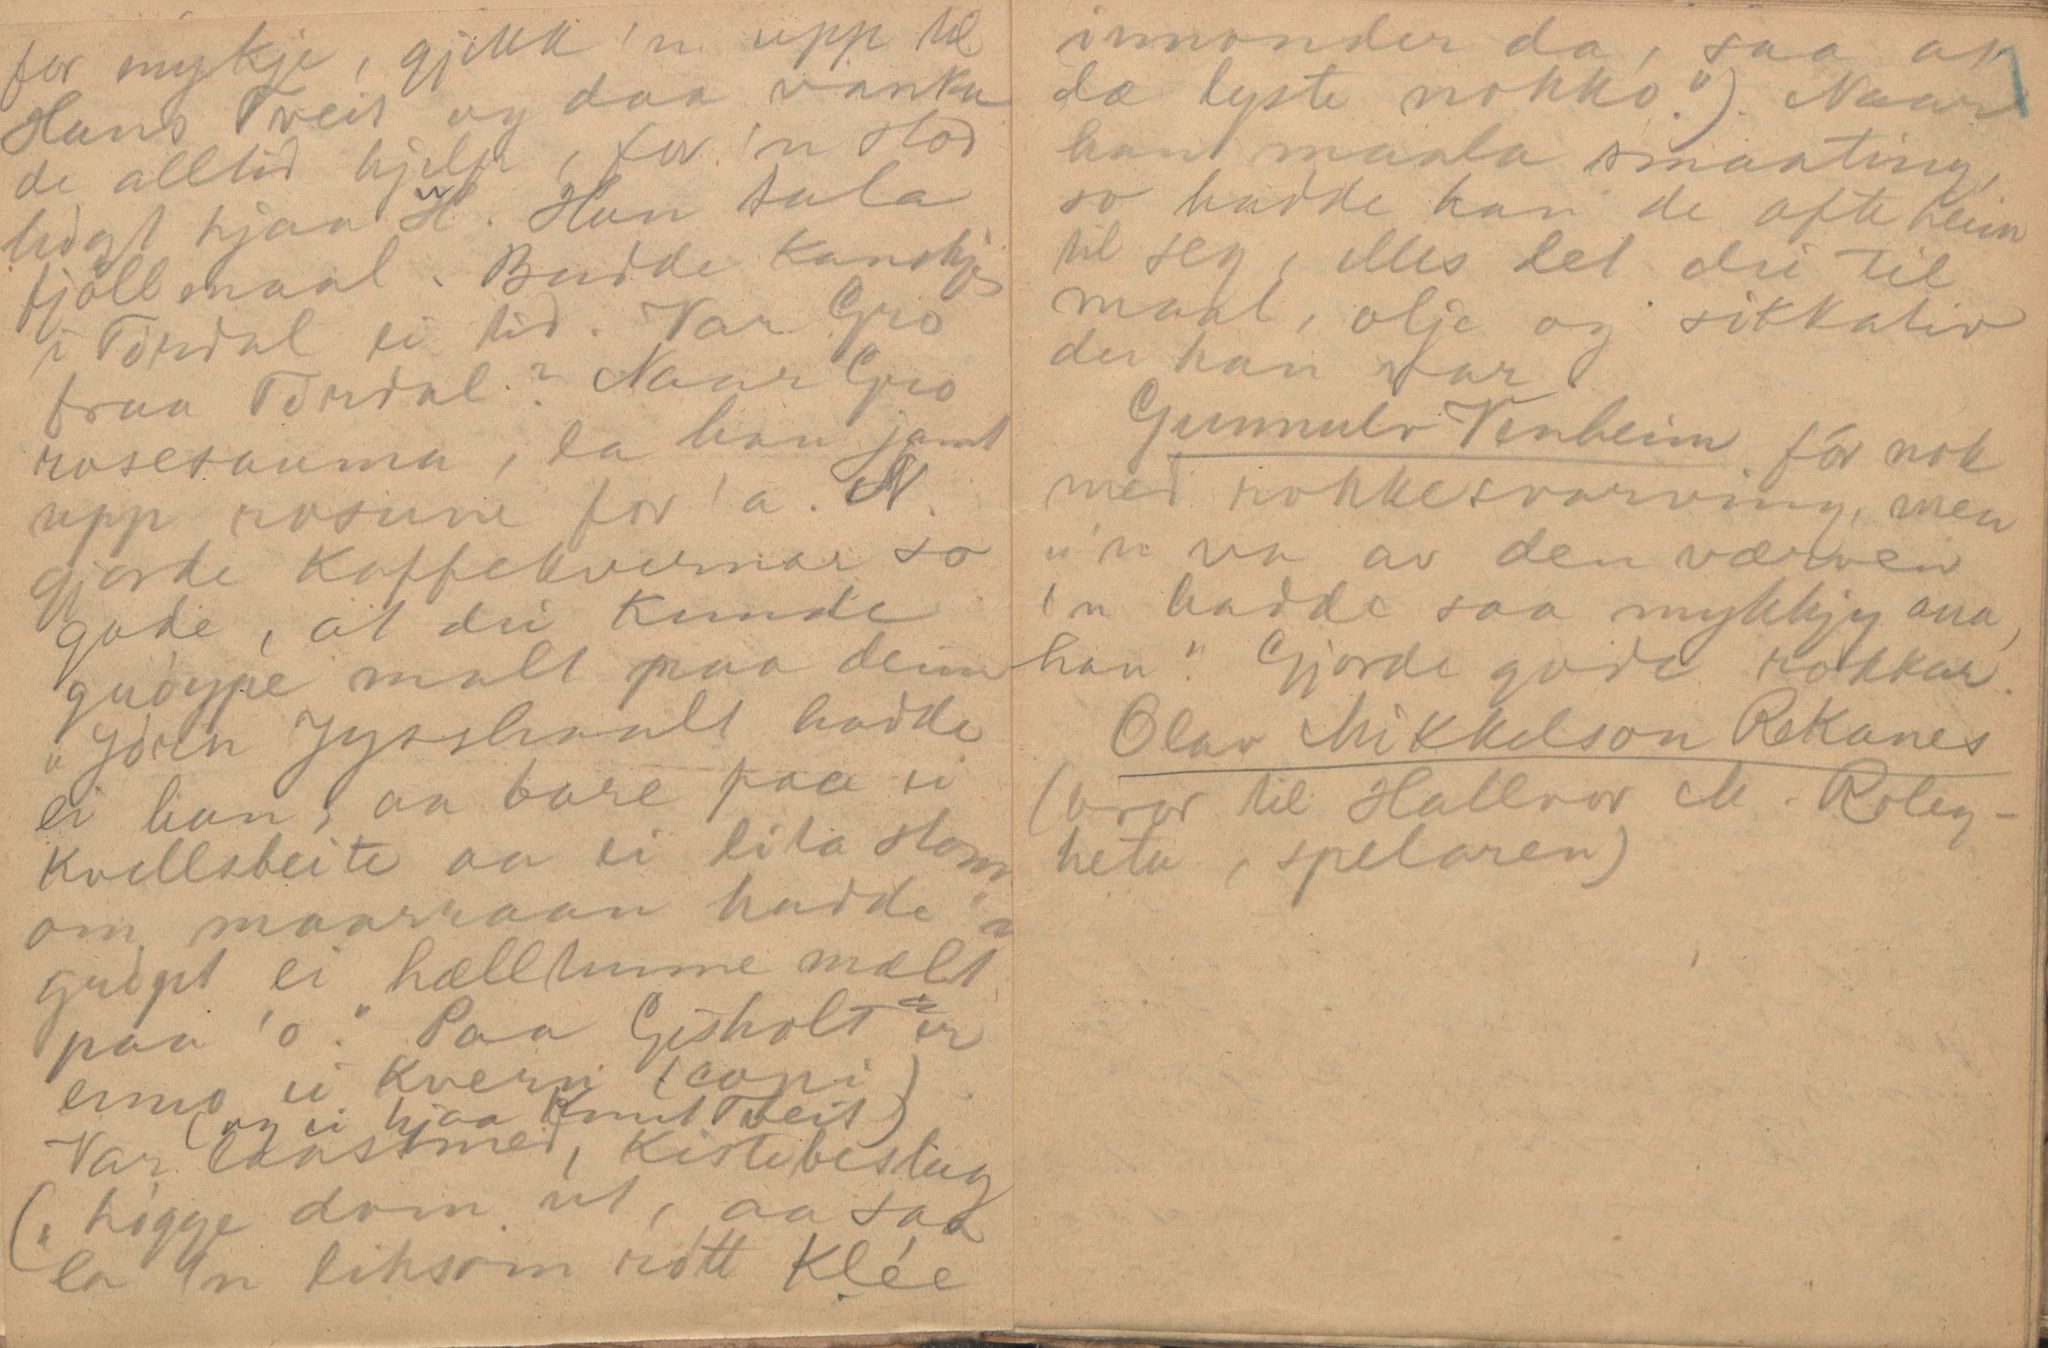 for mykje, gjekk 'n upp til
Hans Tveit og daa vanka
de alltid hjelp, for 'n stod
høgt hjaa H. Han tala
fjøllmaal. Budde kanskje
i Tørdal ei tid. Var Gro
fraa Tørdal? Naar Gro
rosesauma, la han jamt
upp rosune for 'a. N.
gjorde kaffekvernar so
gode, at dei kunde
grøype malt paa deim
"Jøren Jysshaalt hadde
ei han, aa bare paa ei
kvellsbeite aa ei lita stom
om maarraan hadde 'n
grøpt ei hælltunne malt
paa 'o." Paa Gisholt er
enno ei kvern (copi)
(og ei hjaa Knut Tveit)
Var laassmed, kistebeslag
("høgge dom ut, aa saa
la 'n liksom røtt klée
innonder da, saa at
dæ lyste nokko."). Naar
han maala smaating,
so hadde han de ofte heim
til seg, elles let dei til
maal, olje og sikkativ
der han var.
Gunnulv Venheim for nok
med rokkesvarving, men
"'n va av den værven
'n hadde saa mykkjy ana,
han." Gjorde gode rokkar.
Olav Mikkelson Rekanes
(bror til Hallvor M. Roleg-
heta, spelaren)